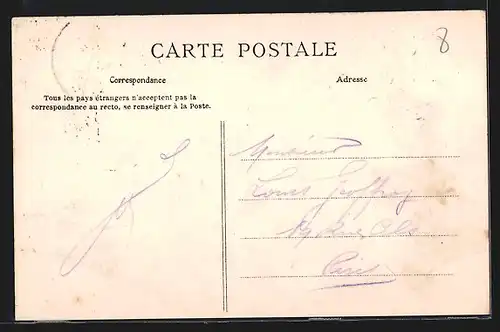 8
CARTE POSTALE
Correspondance
Adresse
Tous les pays étrangers n'acceptent pas la
correspondance au recto, se renseigner à la Poste.
Monsieur
Louis Geoffroy
Rue
Paris